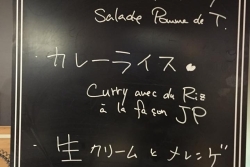 Salade Pomme de T.
・カレーライス
Curry avec du Riz
à la façon JP
・生クリームとメレンゲ